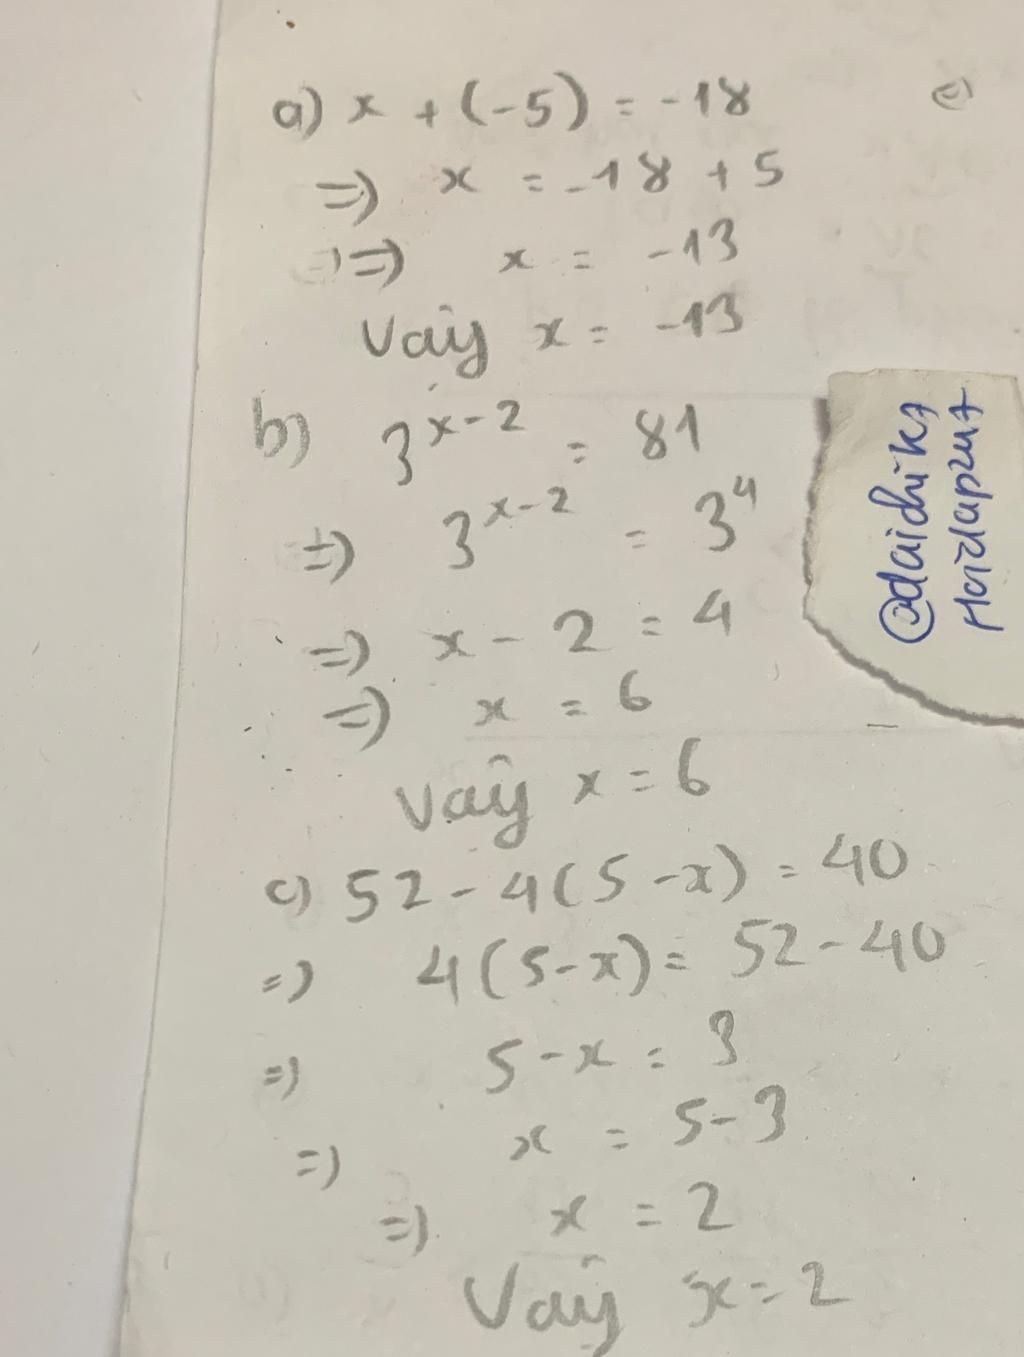 a) x + (-5) = -18
=> x = -18 + 5
=> x = -13
Vậy x = -13
b) 3^{x-2} = 81
=> 3^{x-2} = 3^4
=> x - 2 = 4
=> x = 6
Vậy x = 6
c) 52 - 4(5 - x) = 40
=> 4(5-x) = 52 - 40
=> 5 - x = 3
=> x = 5 - 3
=> x = 2
Vậy x = 2
e)